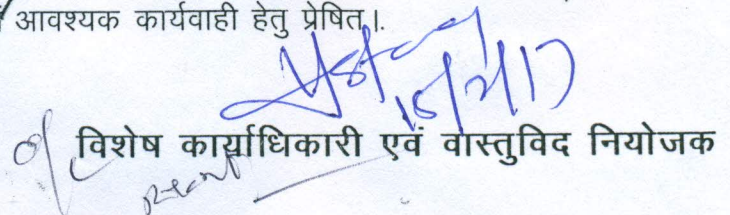 आवश्यक कार्यवाही हेतु प्रेषित।.
विशेष कार्याधिकारी एवं वास्तुविद नियोजक